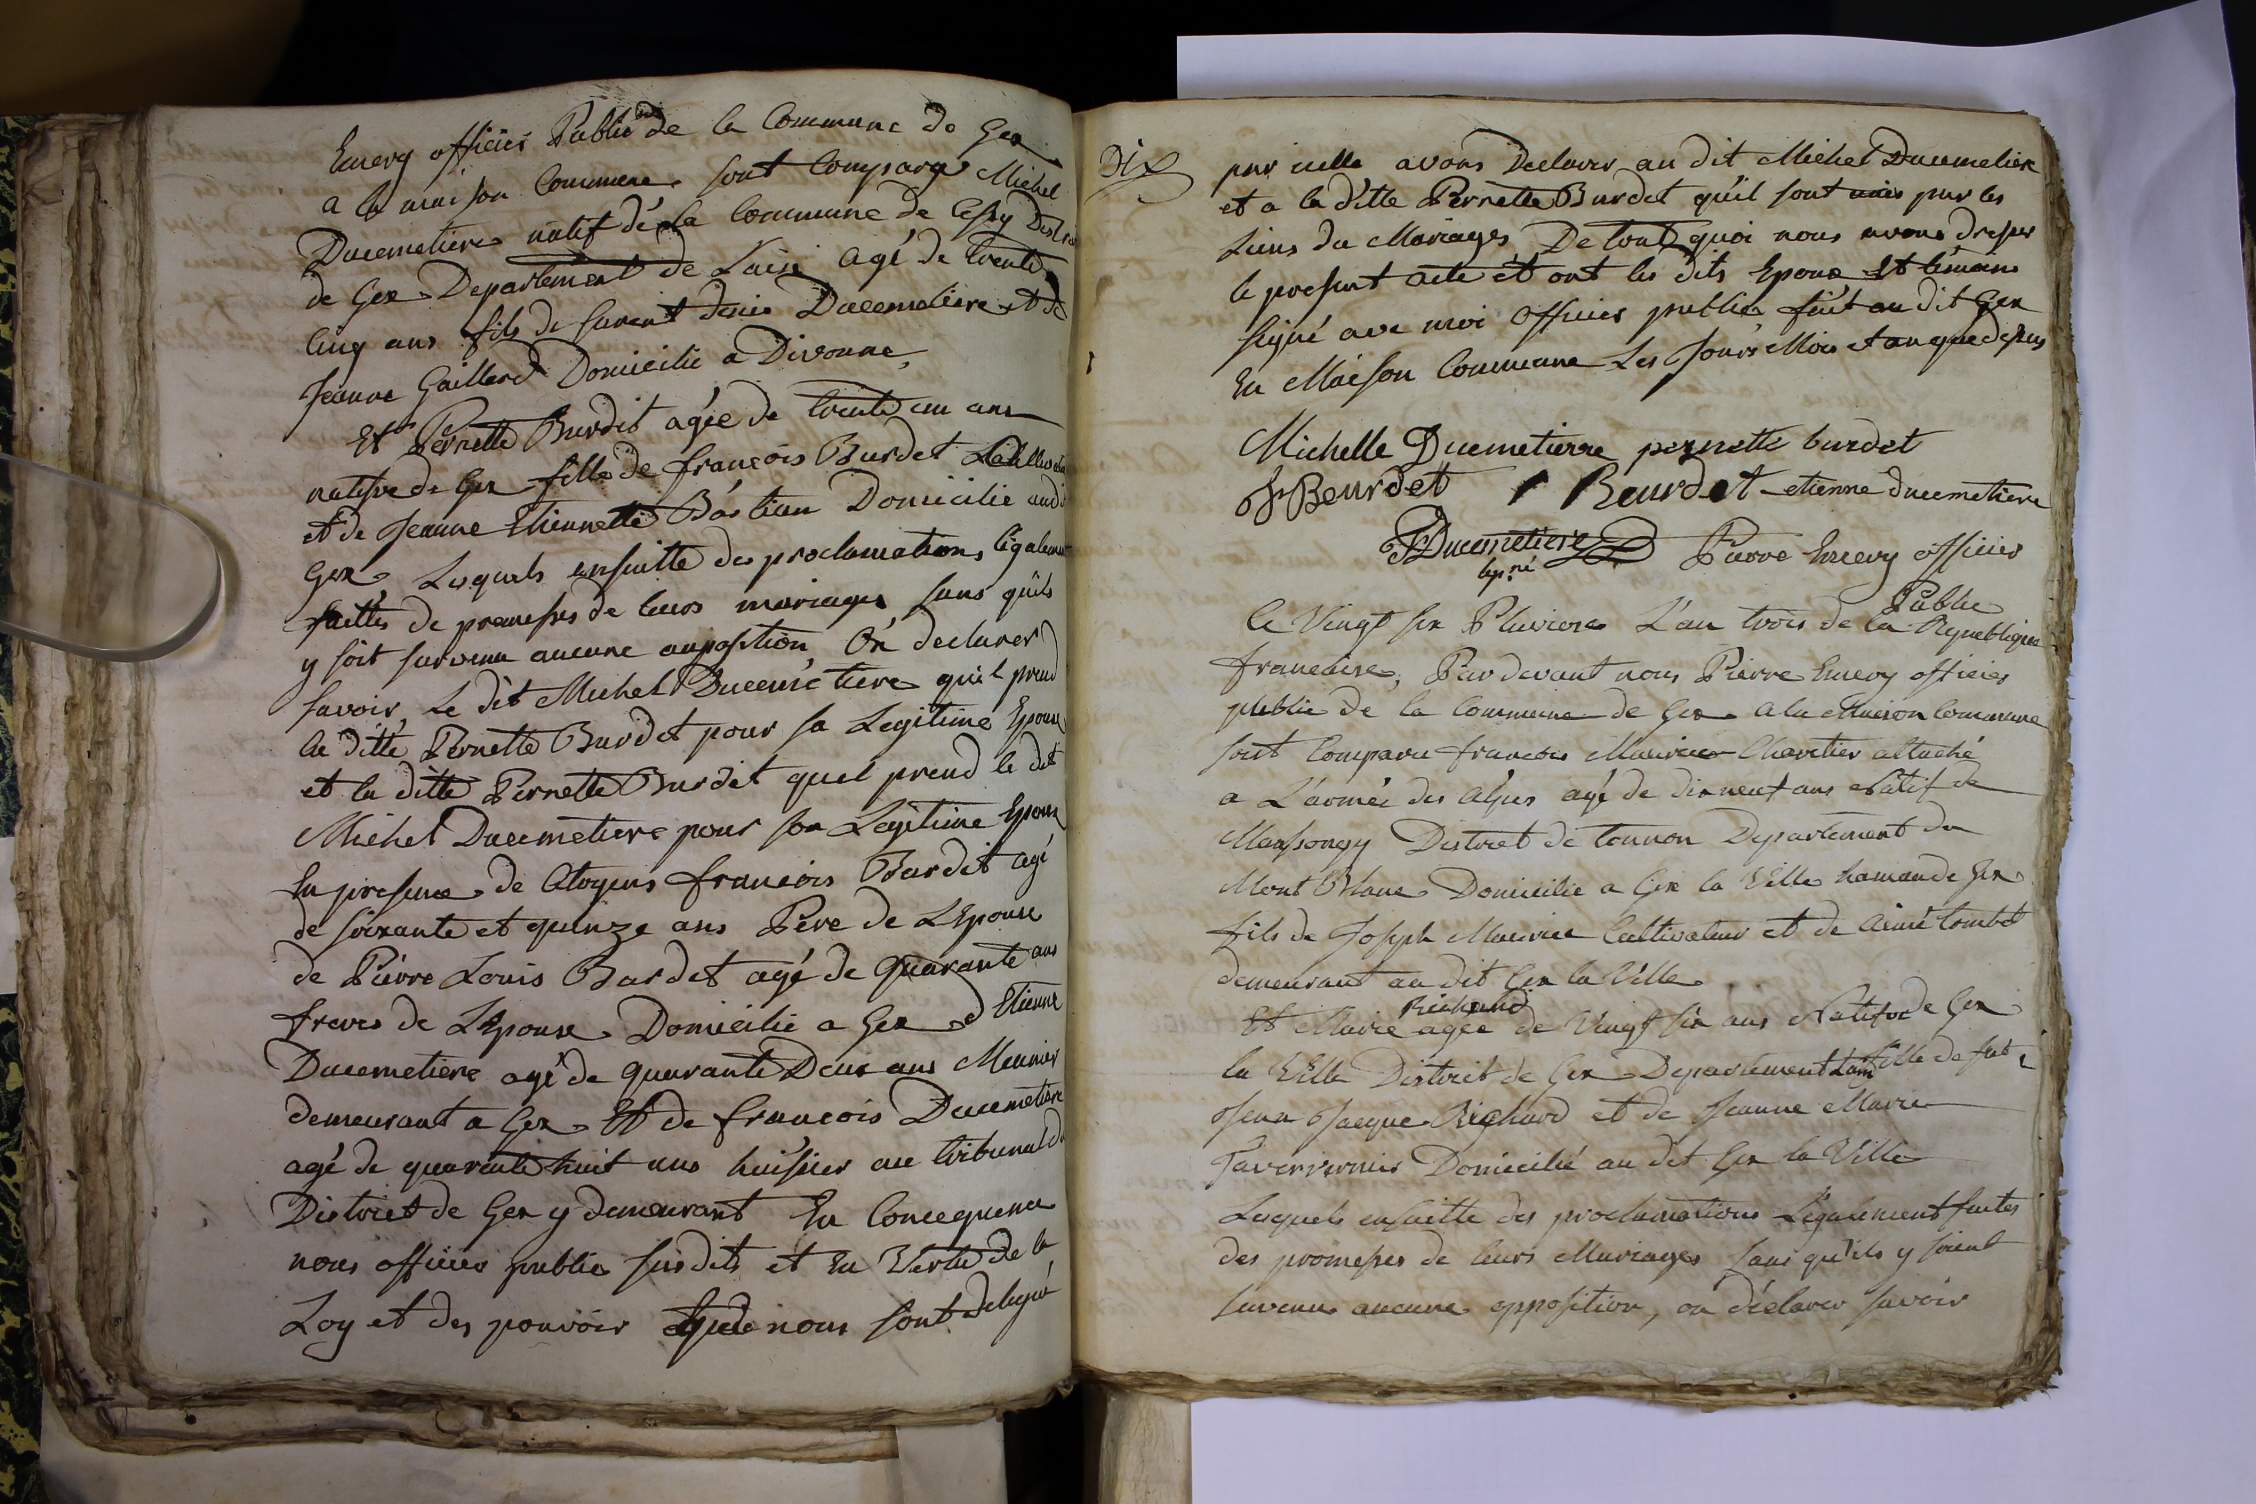 Emery officier Public de la Commune de Gex
a la maison Commune sont Comparg Michel
Ducemetiere natif dé la Commune de Cessy Dest
de Gex Departement de Laise agé de trente
Cinq ans fils de Denis Ducemetiere et de
Jeanne Gaillard Domicilie a Divonne
Et Pernette Burdet agée de trente un ans
native de Gex fille de françois Burdet
et de Jeanne Etiennette Bastian Domicilie audi
Gex Lesquels ensuitte des proclamations légalem
faittes de promesses de leurs mariages sans qu'ils
y soit survenu aucune opposition On declarer
savoir Le dit Michel Ducemetiere qu'il prend
la ditte Pernette Burdet pour sa Legitime Epouse
et la ditte Pernette Burdet quel prend le dit
Michel Ducemetiere pour son Legitime Epoux
En presence de Citoyens francois Burdet agé
de soixante et quinze ans Père de L'Epouse
de Pierre Louis Burdet agé de quarante ans
freres de L'Epouse Domicilie a Gex d Etienne
Ducemetiere agé de quarante Deux ans Meunier
demeurant a Gex Et de francois Ducemetiere
agé de quarente huit ans huissier au tribunal du
District de Gex y demeurant En Concequence
nous officier public susdits et En Vertu de la
Loy et des pouvoir que nous sont delegué
Dix
par icelle avons Declarer au dit Michel Ducemetiere
et a la ditte Pernette Burdet qu'il sont unis par les
Liens du Mariages De tout quoi nous avons dresser
le present acte et ont les dits Epoux et témoins
signé avec moi Officier public fait au dit Gex
En Maison Commune Les Jours Mois et an que dessus
Michelle Ducemetierre pernette burdet
Beurdet Beurdet etienne ducemetiere
Ducemetiere Pierre Emery officier
Public
Le Vingt six Pluviose L'an trois de la Republique
francaise, Par devant nous Pierre Emery officier
public de la Commune de Gex a la Maison Commune
sont Comparu francois Maurice Charetier attaché
a L'armée des Alpes agé de dix neuf ans Natif de
Massongy District de tonnon Departement du
Mont Blanc Domicilie a Gex la Ville hamau de Gex
fils de Joseph Maurice Cultivateur et de Aimé tombet
demeurant au dit Gex la Ville
Richard
Et Marie agée de Vingt six ans Native de Gex
la Ville District de Gex Departement Lain fille de fut
Jean Jacque Richard et de Jeanne Marie
Domicilié au dit Gex la Ville
Lesquels ensuitte des proclamations Légalement faites
des promesses de leurs Mariages sans qu'ils y soient
survenu aucune opposition, on déclarer savoir